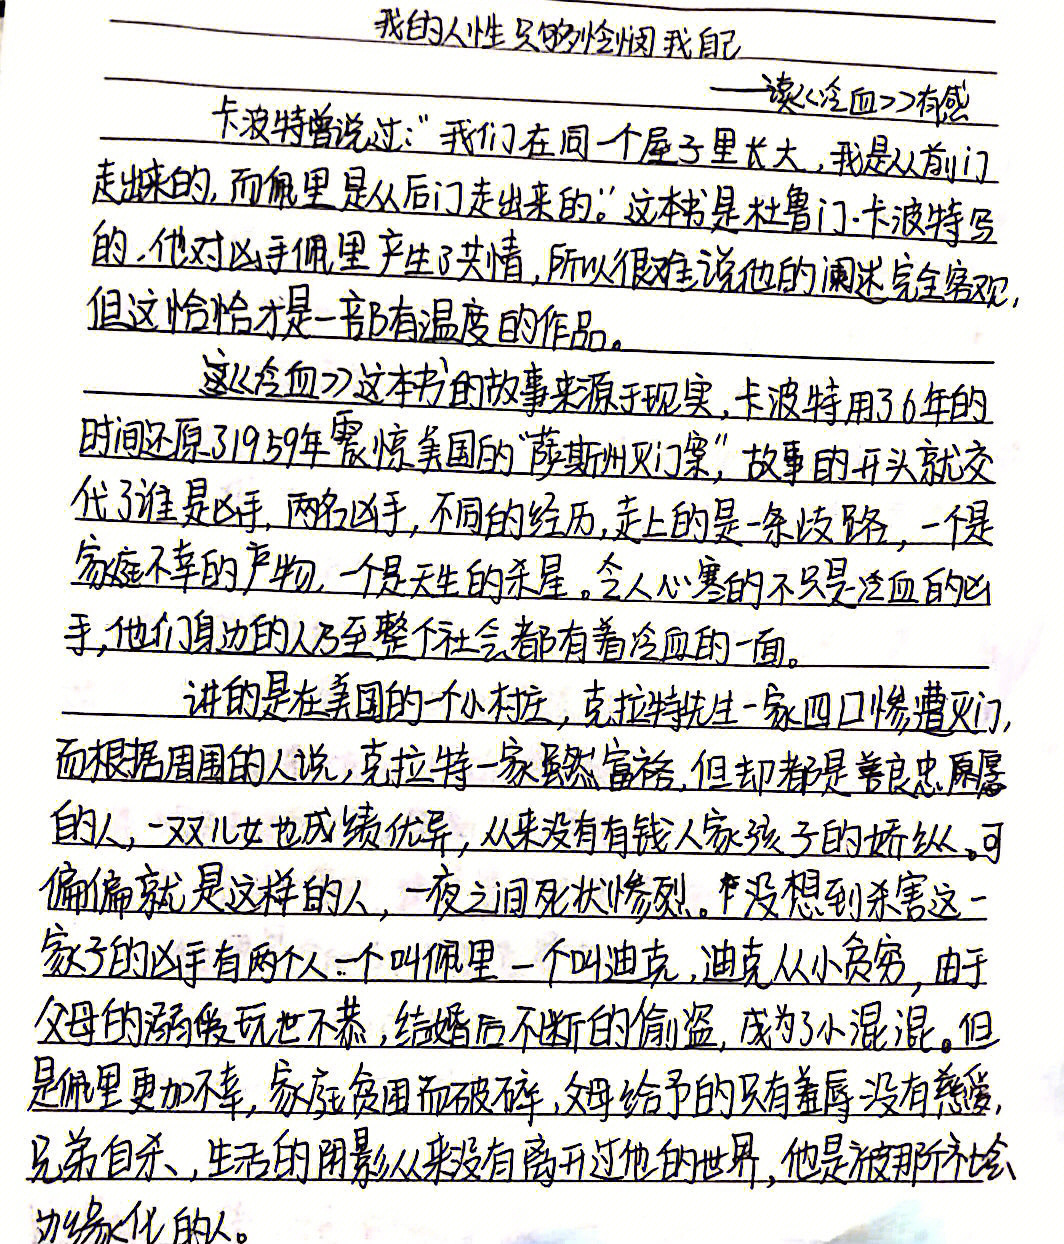 我的人性只够怜悯我自己
——读《冷血》有感
卡波特曾说过："我们在同一个屋子里长大,我是从前门
走出来的,而佩里是从后门走出来的。"这本书是杜鲁门·卡波特写
的,他对凶手佩里产生了共情,所以很难说他的阐述完全客观,
但这恰恰才是一部有温度的作品。
这《冷血》这本书的故事来源于现实,卡波特用了6年的
时间还原了1959年震惊美国的"萨斯州灭门案",故事的开头就交
代了谁是凶手,两名凶手,不同的经历,走上的是一条歧路,一个是
家庭不幸的产物,一个是天生的杀星。令人心寒的不只是冷血的凶
手,他们身边的人乃至整个社会都有着冷血的一面。
讲的是在美国的一个小村庄,克拉特先生一家四口惨遭灭门,
而根据周围的人说,克拉特一家虽然富裕,但却都是善良忠厚
的人,一双儿女也成绩优异,从来没有有钱人家孩子的娇纵。可
偏偏就是这样的人,一夜之间死状惨烈。没想到杀害这一
家子的凶手有两个人一个叫佩里一个叫迪克,迪克从小贫穷,由于
父母的溺爱玩世不恭,结婚后不断的偷盗,成为了小混混。但
是佩里更加不幸,家庭贫困而破碎,父母给予的只有羞辱没有慈爱,
兄弟自杀、,生活的阴影从来没有离开过他的世界,他是被那个社会
边缘化的人。